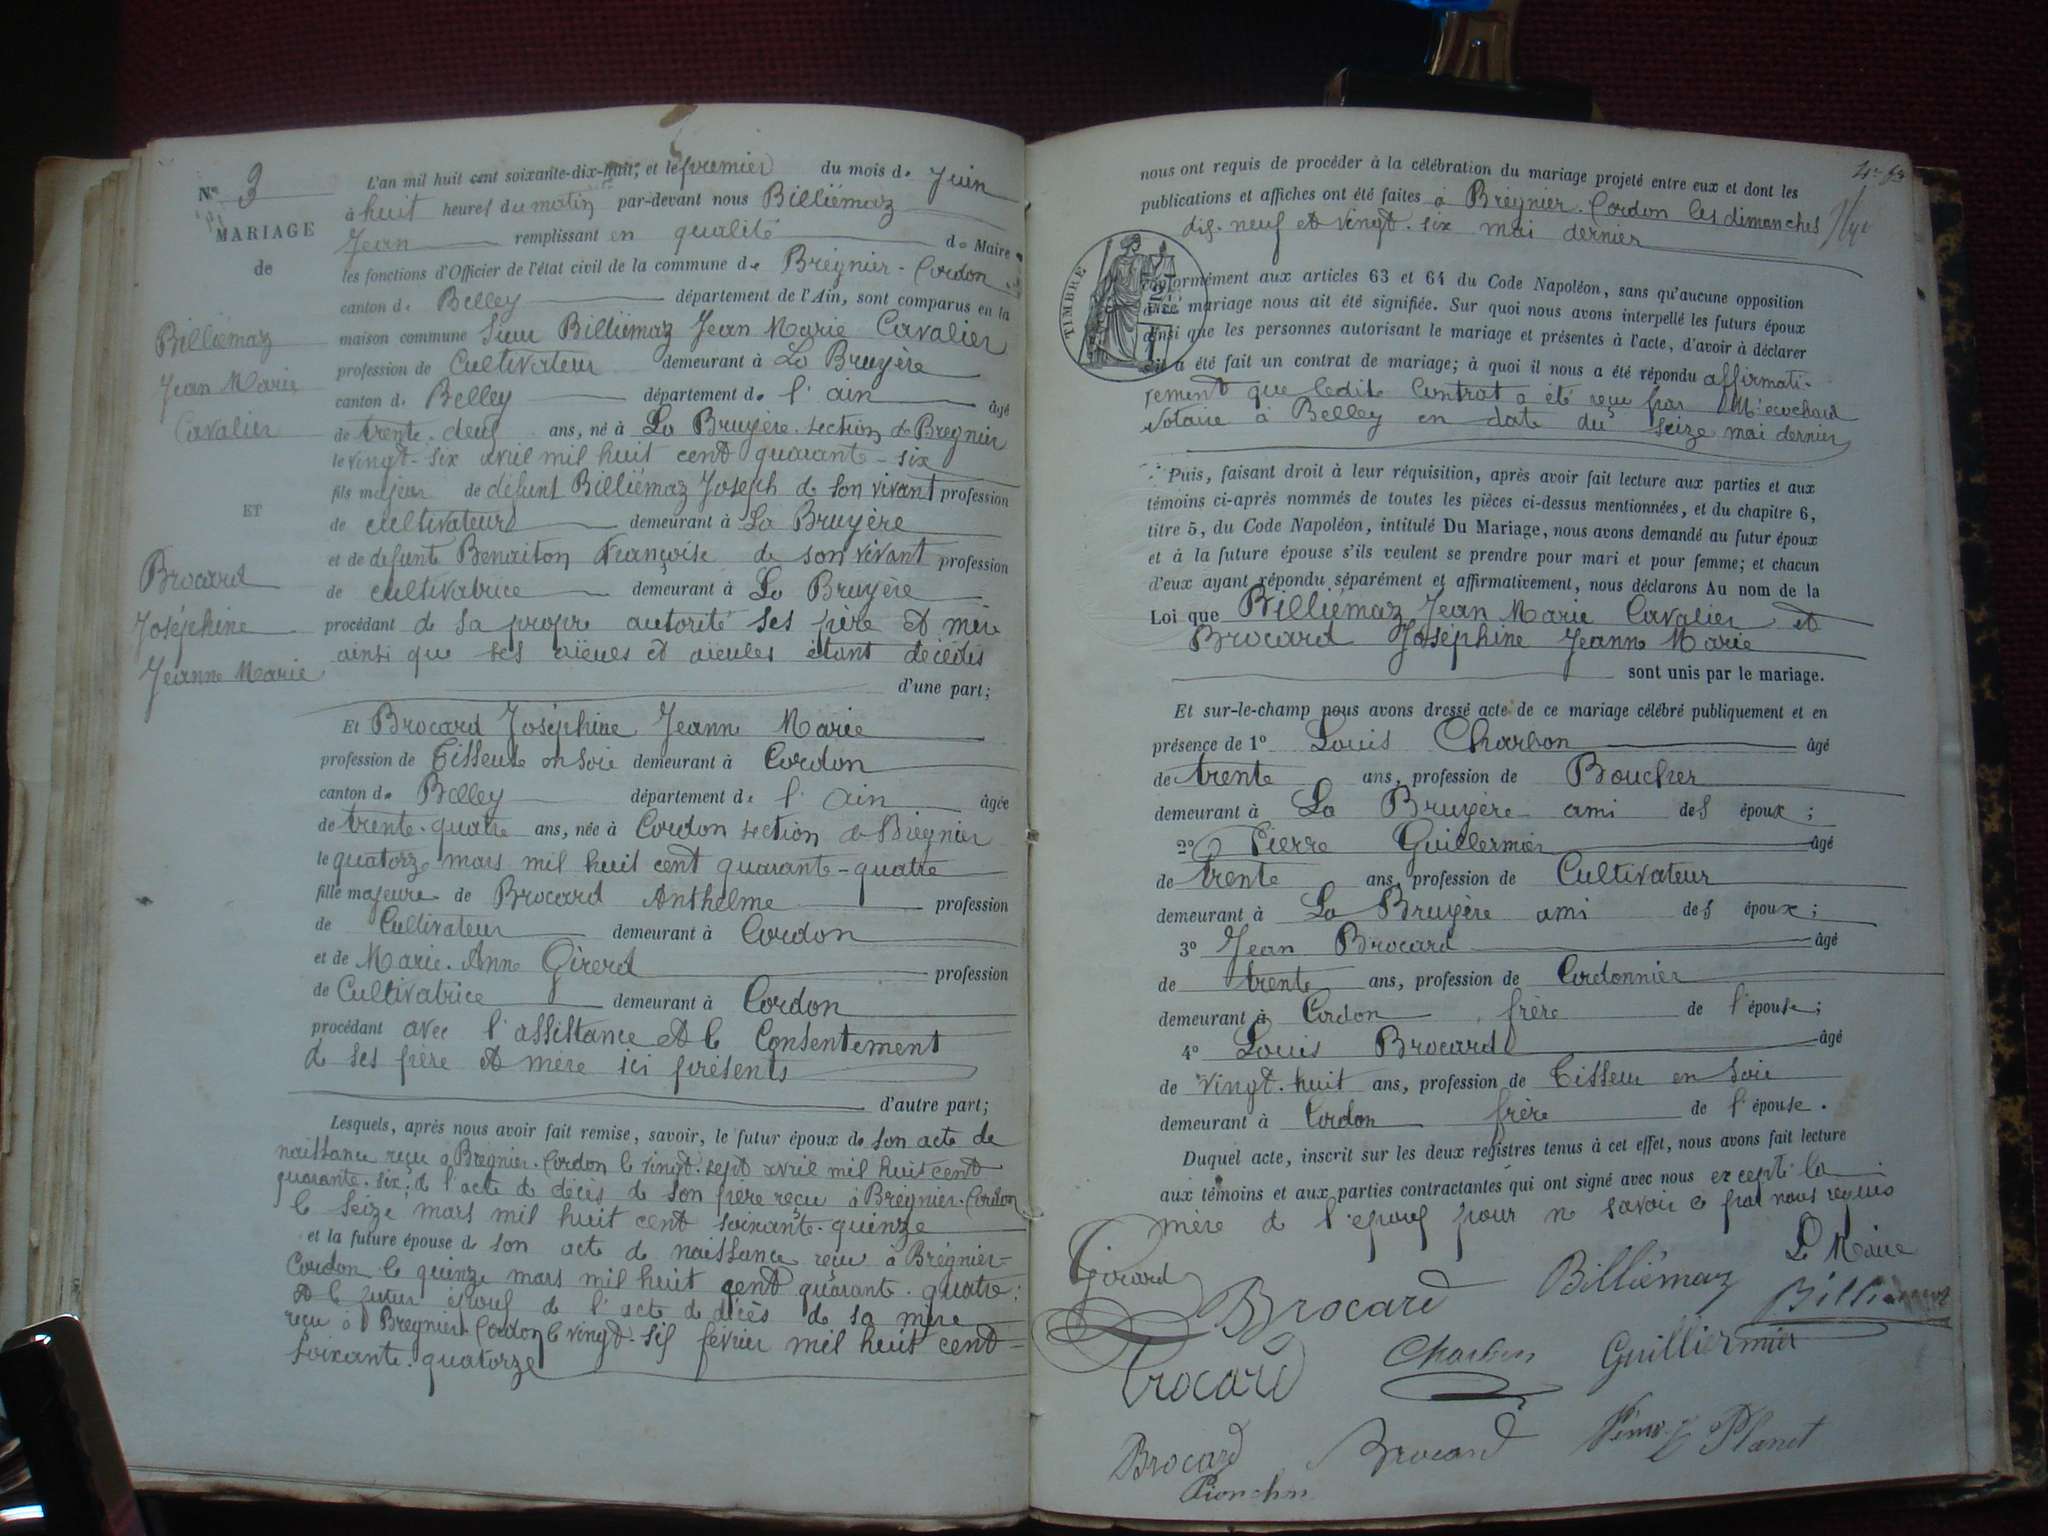 N° 3
MARIAGE
de
Billiémaz
Jean Marie
Cavalier
ET
Brocard
Joséphine
Jeanne Marie
L'an mil huit cent soixante-dix-huit, et le premier du mois de Juin
à huit heures du matin par-devant nous Billiémaz
Jean remplissant en qualité de Maire
les fonctions d'Officier de l'état civil de la commune de Brégnier-Cordon
canton de Belley département de l'Ain, sont comparus en la
maison commune Sieur Billiémaz Jean Marie Cavalier
profession de Cultivateur demeurant à La Bruyère
canton de Belley département de l'ain âgé
de trente-deux ans, né à La Bruyère section de Bregnier
le vingt-six avril mil huit cent quarante-six
fils majeur de défunt Billiémaz Joseph de son vivant profession
de cultivateur demeurant à La Bruyère
et de défunte Benaiton Françoise de son vivant profession
de cultivatrice demeurant à La Bruyère
procédant de sa propre autorité ses père et mère
ainsi que ses aïeuls et aïeules étant décédés
d'une part;
Et Brocard Joséphine Jeanne Marie
profession de Tisseuse en soie demeurant à Cordon
canton de Belley département de l'ain âgée
de trente-quatre ans, née à Cordon section de Brégnier
le quatorze mars mil huit cent quarante-quatre
fille majeure de Brocard Anthelme profession
de Cultivateur demeurant à Cordon
et de Marie-Anne Girerd profession
de Cultivatrice demeurant à Cordon
procédant avec l'assistance et le consentement
de ses père et mère ici présents
d'autre part;
Lesquels, après nous avoir fait remise, savoir, le futur époux de son acte de
naissance reçu à Brégnier-Cordon le vingt-sept avril mil huit cent
quarante-six; de l'acte de décès de son père reçu à Brégnier-Cordon
le seize mars mil huit cent soixante-quinze
et la future épouse de son acte de naissance reçu à Brégnier-
Cordon le quinze mars mil huit cent quarante-quatre;
et le futur époux de l'acte de décès de sa mère
reçu à Bregnier-Cordon le vingt-six février mil huit cent
soixante-quatorze
nous ont requis de procéder à la célébration du mariage projeté entre eux et dont les
publications et affiches ont été faites à Brégnier-Cordon les dimanches
dix-neuf et vingt-six mai dernier
TIMBRE
conformément aux articles 63 et 64 du Code Napoléon, sans qu'aucune opposition
audit mariage nous ait été signifiée. Sur quoi nous avons interpellé les futurs époux
ainsi que les personnes autorisant le mariage et présentes à l'acte, d'avoir à déclarer
s'il a été fait un contrat de mariage; à quoi il nous a été répondu affirmati-
vement que ledit Contrat a été reçu par
Notaire à Belley en date du seize mai dernier
Puis, faisant droit à leur réquisition, après avoir fait lecture aux parties et aux
témoins ci-après nommés de toutes les pièces ci-dessus mentionnées, et du chapitre 6,
titre 5, du Code Napoléon, intitulé Du Mariage, nous avons demandé au futur époux
et à la future épouse s'ils veulent se prendre pour mari et pour femme; et chacun
d'eux ayant répondu séparément et affirmativement, nous déclarons Au nom de la
Loi que Billiémaz Jean Marie Cavalier et
Brocard Joséphine Jeanne Marie
sont unis par le mariage.
Et sur-le-champ nous avons dressé acte de ce mariage célébré publiquement et en
présence de 1° Louis Charbon âgé
de trente ans, profession de Boucher
demeurant à La Bruyère ami des époux;
2° Pierre Guillermier âgé
de trente ans, profession de Cultivateur
demeurant à La Bruyère ami des époux;
3° Jean Brocard âgé
de trente ans, profession de Cordonnier
demeurant à Cordon frère de l'épouse;
4° Louis Brocard âgé
de vingt-huit ans, profession de Tisseur en soie
demeurant à Cordon frère de l'épouse.
Duquel acte, inscrit sur les deux registres tenus à cet effet, nous avons fait lecture
aux témoins et aux parties contractantes qui ont signé avec nous excepté la
mère de l'epouse pour ne savoir ce par nous requis
Le Maire
Girard Brocard Billiémaz Billiemaz
Brocard Charbon Guilliermier
Brocard Brocard Planet